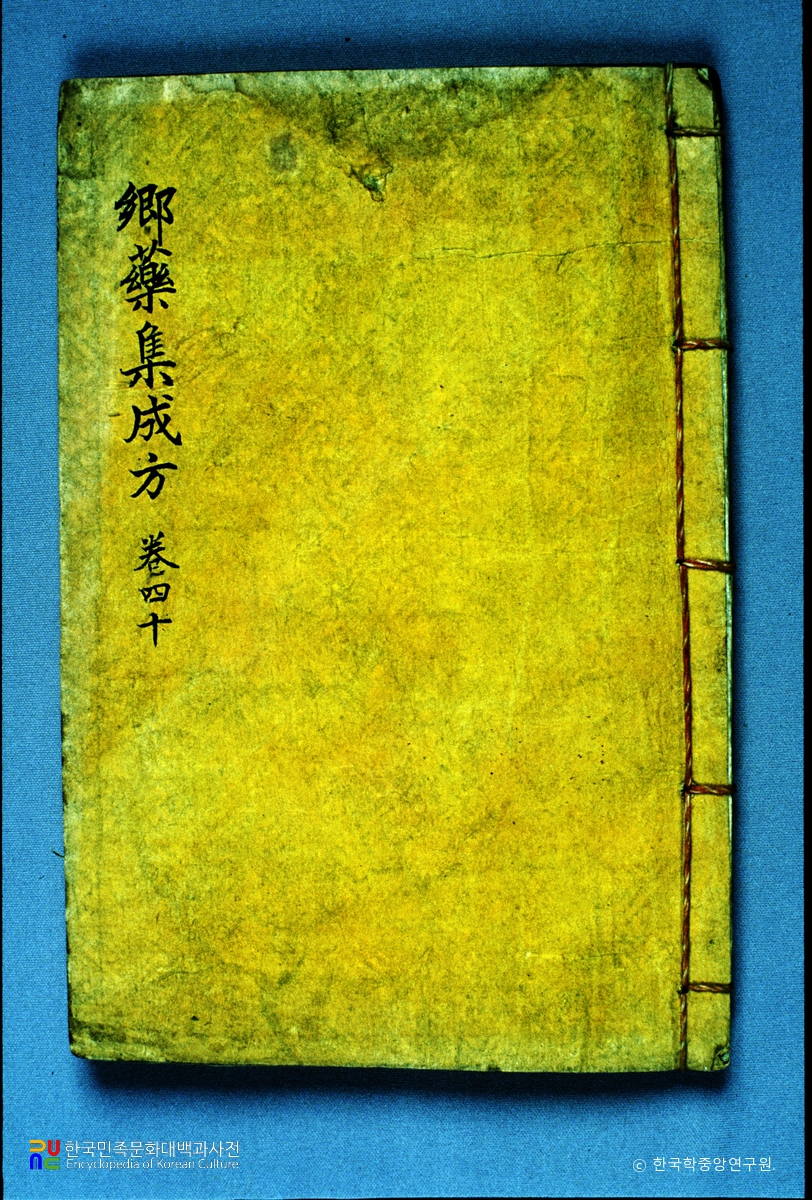 鄉藥集成方 卷四十
한국민족문화대백과사전
Encyclopedia of Korean Culture
© 한국학중앙연구원.